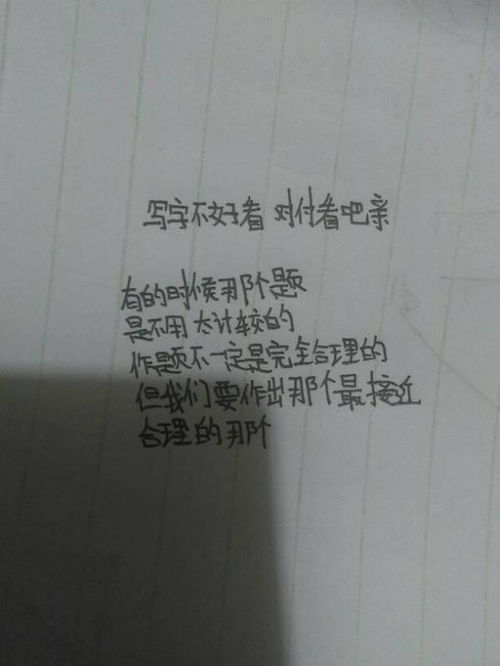 写字不好看 对付看吧亲
有的时候那个题
是不用太计较的
作题不一定是完全合理的
但我们要作出那个最接近
合理的那个